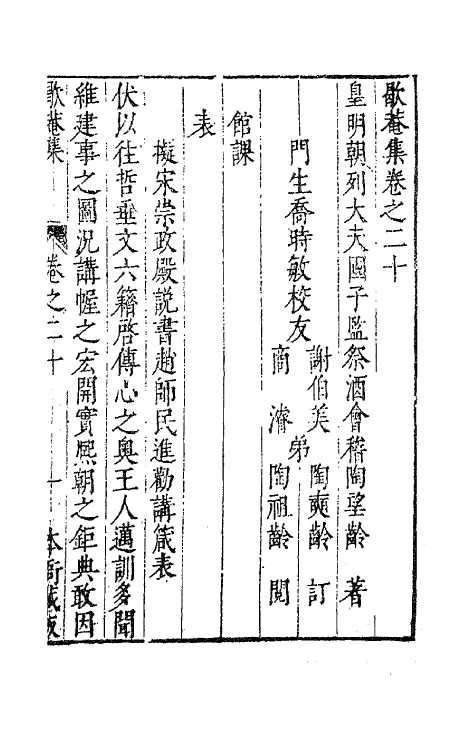 歇菴集卷之二十
皇明朝列大夫國子監祭酒會稽陶望齡 著
門生喬時敏校友 謝伯美 弟 陶奭齡 訂
商 濬 陶祖齡 閱
館課
表
擬宋崇政殿說書趙師民進勸講箴表
伏以往哲垂文六籍啓傳心之奧王人邁訓多聞
維建事之圖況講幄之宏開實熙朝之鉅典敢因
歇菴集 卷之二十 一 本衙藏板